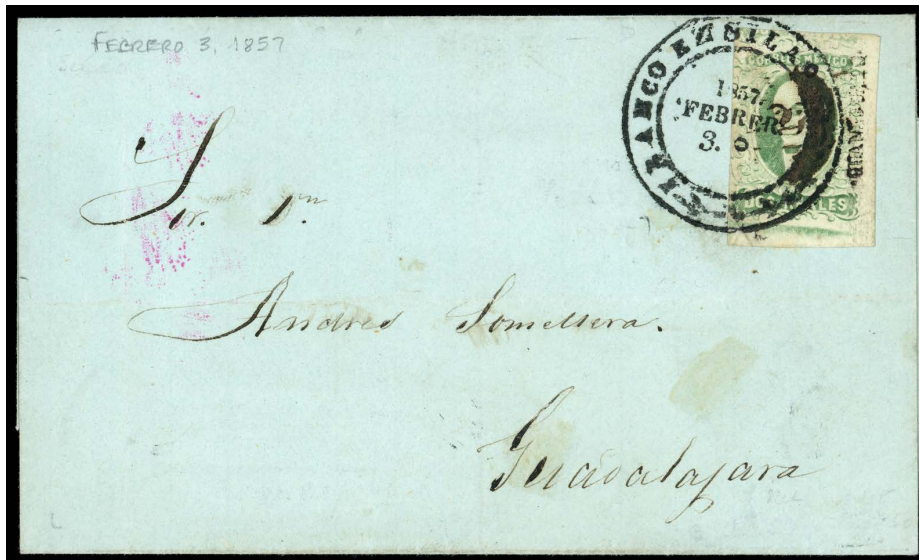 FEBRERO 3, 1857
FRANCO EN SILAO
1857.
FEBRERO
3.
CORREOS MEJICO
DOS REALES
Sr. Dn
Andres Somellera.
Guadalajara